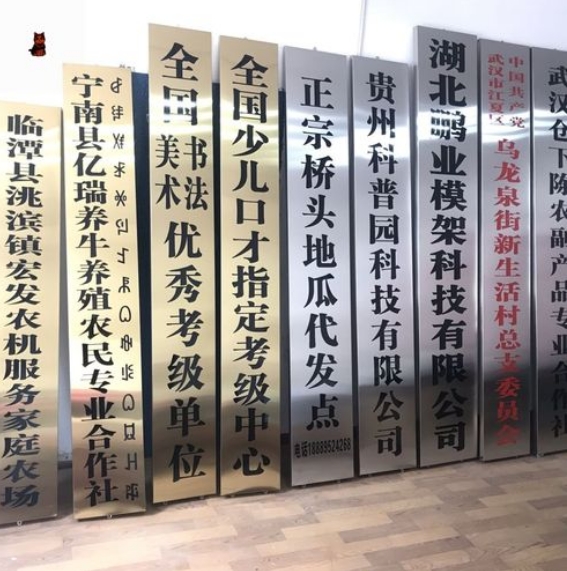 临潭县洮滨镇宏发农机服务家庭农场
宁南县亿瑞养牛养殖农民专业合作社
全国
美术
书法
优秀考级单位
全国少儿口才指定考级中心
正宗桥头地瓜代发点
电话18889524268
贵州科普园科技有限公司
湖北鹏业模架科技有限公司
中国共产党
武汉市江夏区
乌龙泉街新生活村总支委员会
武汉仓下陈农副产品专业合作社